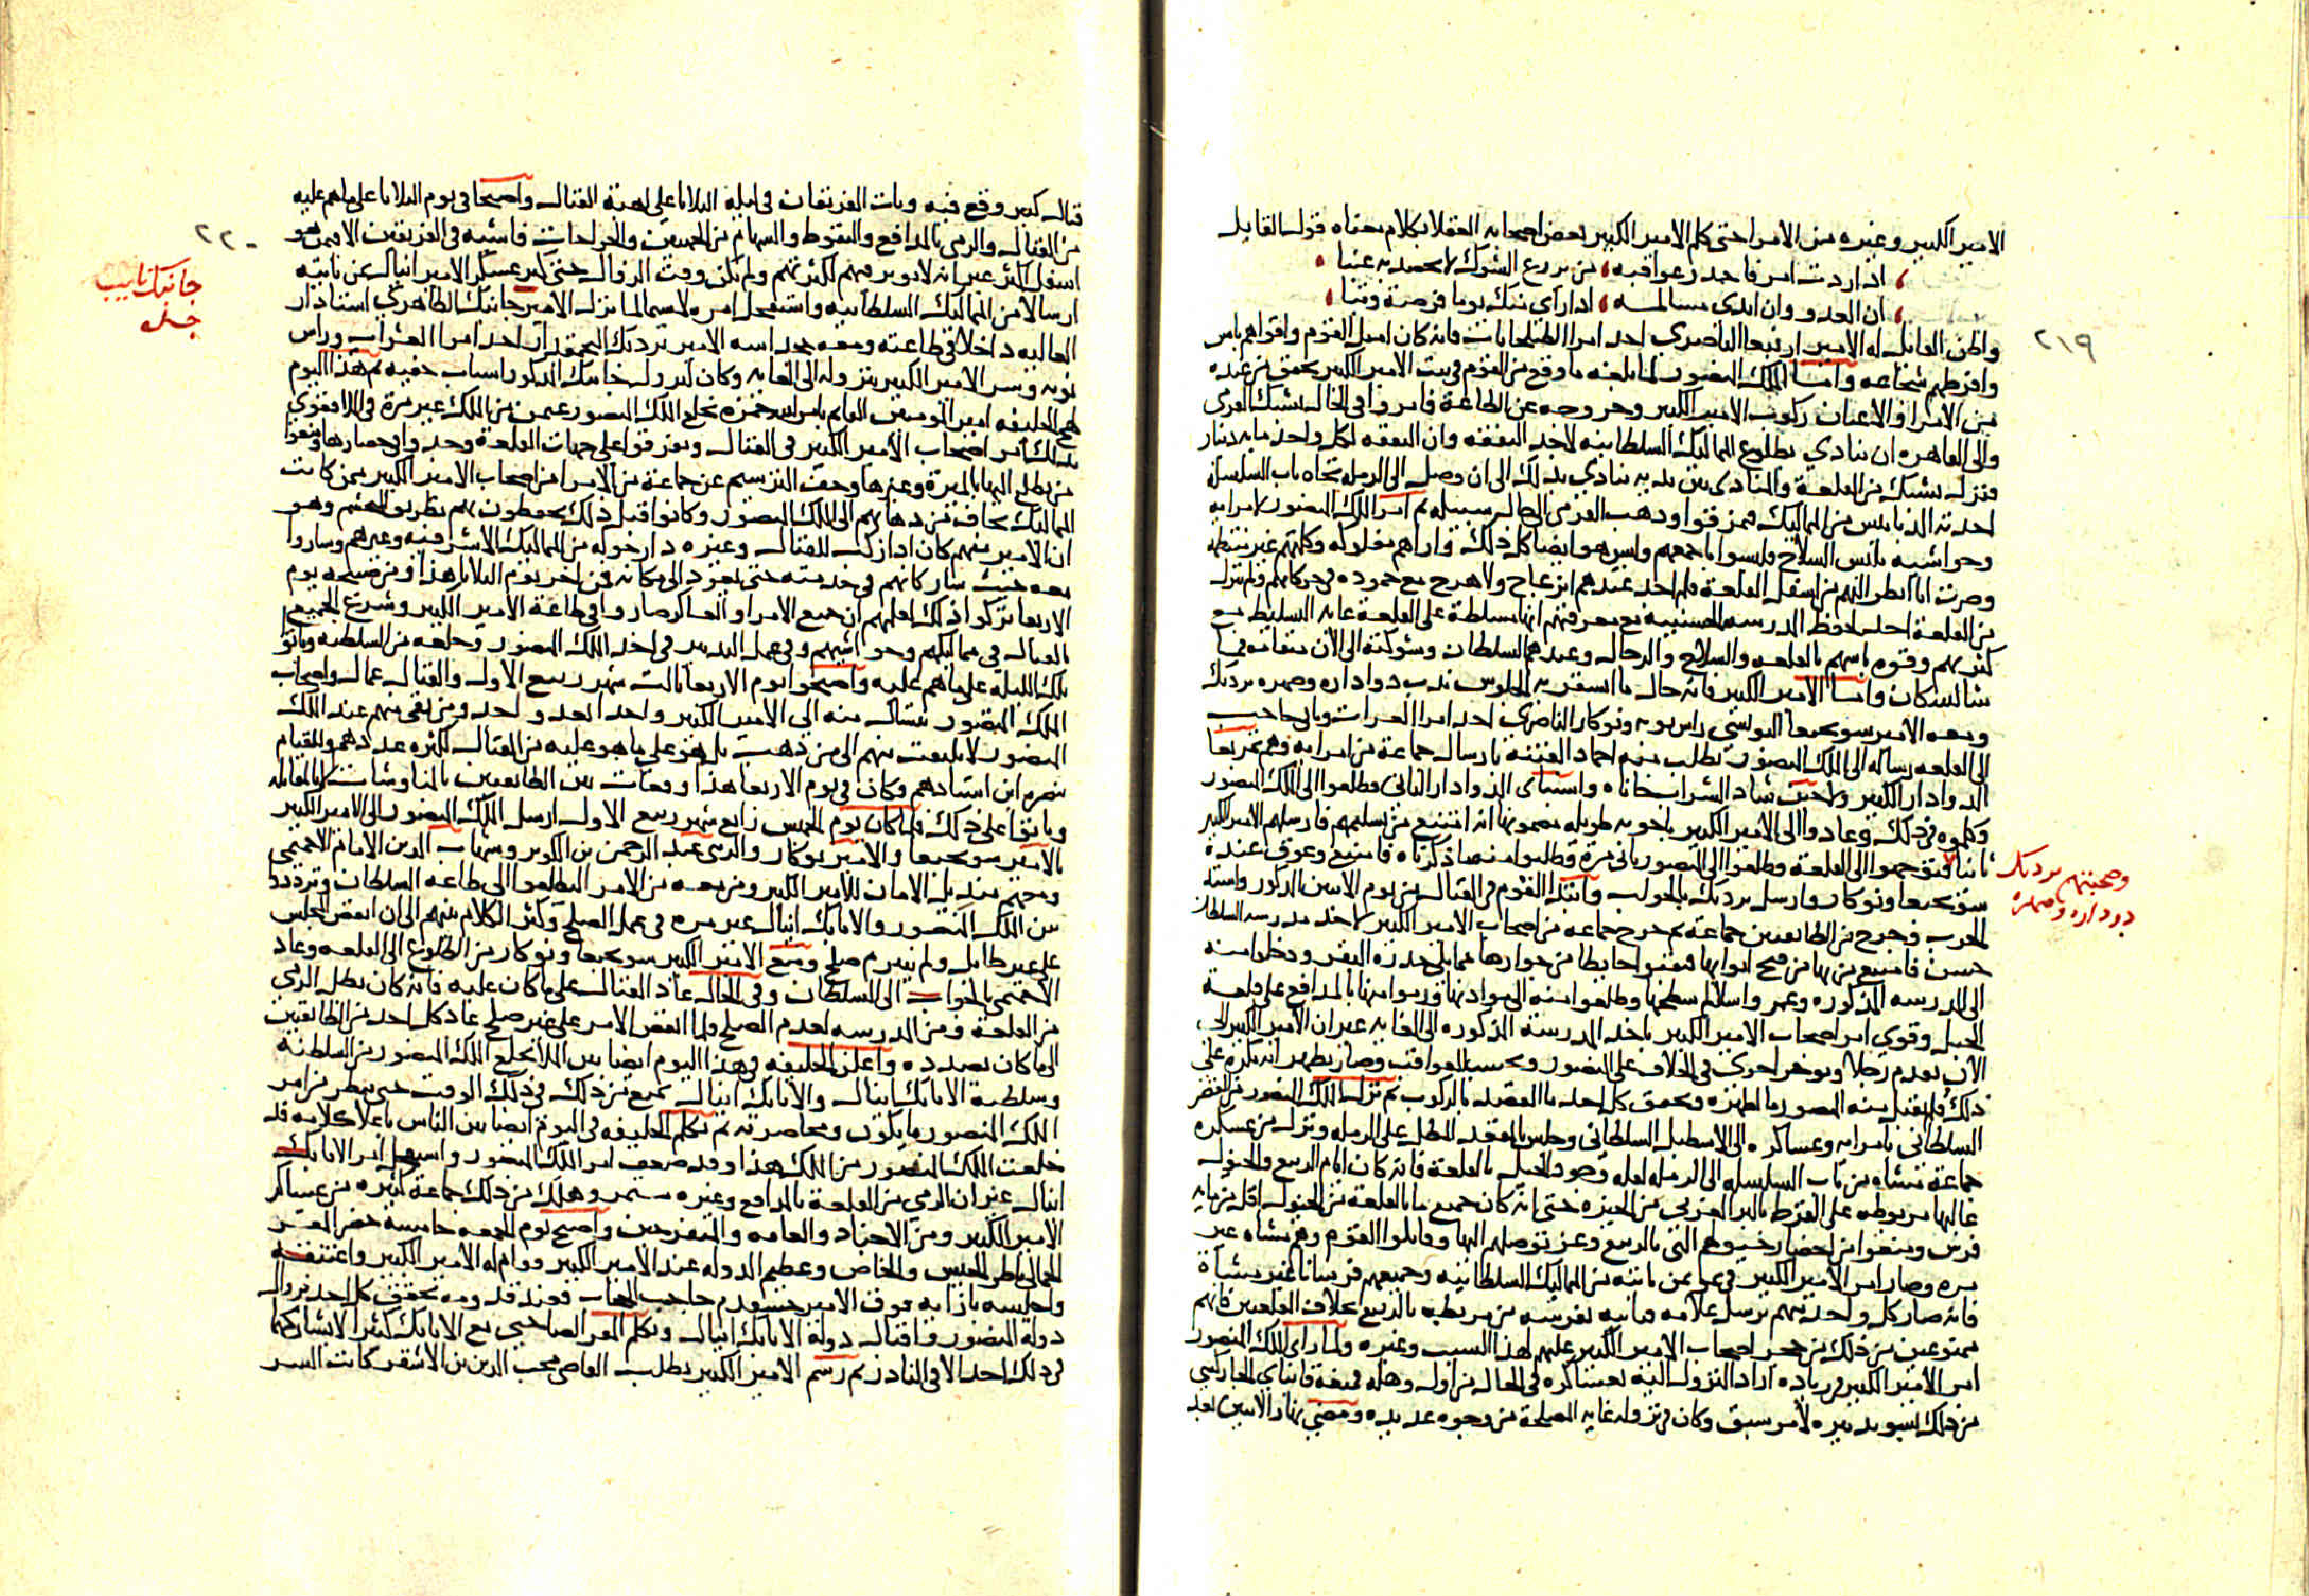 الامير الكبير وغيره من الامرا حتى كلم الامير الكبير بعض اصحابه العقلا بكلام معناه قول القايل
اذا اردت امر فاحذر عواقبه من يزرع الشوك لا يحصد به عنبا
ان العدو وان ابدى مسالمه اذا راى منك يوما فرصة وثبا
٢١٩
واظن القايل له الامير ارنبغا الناصري احد امرا الطبلخانات فانه كان اميل القوم واقواهم باس
وافرطهم شجاعه واما الملك المنصور لما بلغه ما وقع من القوم في بيت الامير الكبير تحقق من عنده
من الامرا والاعيان ركوب الامير الكبير وخروجه عن الطاعة فامروا في الحال يشبك القرمى
والى القاهره ان ينادي بطلوع المماليك السلطانيه لاخذ النفقه وان النفقه لكل واحد مايه دينار
ونزل يشبك من القلعة والمنادى بين يديه ينادي بذلك الى ان وصل الى الرمله تجاه باب السلسله
احدته الدبابيس من المماليك فتمزقوا وذهب القرمى الى حال سبيله ثم امر الملك المنصور لامرايه
وحواشيه بلبس السلاح فلبسوا باجمعهم ولبس هو ايضا كل ذلك واراهم مفلوله وكلمتهم غير منتظمه
وصرت انا انظر اليهم من اسفل القلعة فلم اجد عندهم انزعاج ولا هرج مع جموده في حركاتهم ولم ينزل
من القلعة احد لحفظ المدرسة الحسنية مع معرفتهم انها مسلطة على القلعة غاية التسليط مع
كثرتهم وقوه باسهم بالقلعه والسلاح والرجال وعندهم السلطان وشوكته الى الان متقايمه فيا
شا الله كان واما الامير الكبير فانه حال ما استقر به الجلوس ندب دواداره وصهره بردبك
ومعه الامير سونجبغا اليونسي راس نوبه ونوكار الناصري احد امرا العشرات وثاني حاجب
الى القلعه رساله الى الملك المنصور يطلب منه اخماد الفتنة بارسال جماعة من امرايه وهم تمربغا
الدوادار الكبير ولاجين شاد الشراب خاناه واسنباى الدوادار الثانى وطلعوا الى الملك المنصور
وكلموه في ذلك وعادوا الى الامير الكبير باجوبه طويله مضمونها انه امتنع من تسليمهم فارسلهم الامير الكبير
ثانيا فتوجهوا الى القلعة وطلعوا الى المنصور ثاني مرة وطلبوا منه ما ذكرناه فامتنع وعوق عنده
سونجبغا ونوكار وارسل بردبك بالجواب وابتدا القوم في القتال من يوم الاثنين المذكور واشتد
الحرب وجرح من الطايفتين جماعة ثم خرج جماعه من اصحاب الامير الكبير لاخذ مدرسه السلطان
وصحبتهم بردبك
دوداره وصهره
حسن فامتنع من بها من فتح ابوابها فنقبوا حايطا من جوارها مما يلي حدره البقر ودخلوا منه
الى المدرسه المذكوره وعمر واسلالم سطحها وطلعوا منه الى موادنها ورموا منها بالمدافع على قلعة
الجبل وقوي امر اصحاب الامير الكبير باخذ المدرسة المذكوره الى الغايه غير ان الامير الكبير الى
الان يقدم رجلا ويوخر اخرى في الخلاف على المنصور ويحسب العواقب وصار يظهر انه مكره على
ذلك فلم يقبل منه المنصور ما اظهره وتحقق كل احد ما القصد بالركوب ثم نزل الملك المنصور من القصر
السلطانى بامرايه وعساكره الى الاسطبل السلطانى وجلس بالمقعد المطل على الرمله ونزل من عسكره
جماعة مشاه من باب السلسله الى الرمله لقله وجود الخيل بالقلعة فانه كان ايام الربيع والخيول
غالبها مربوطه على القرط بالبر الغربي من الجيزه حتى انه كان جميع ما بالقلعة من الخيول اقل من مايه
فرس ومنعوا من احضار خيولهم التي بالربيع وعز توصلهم اليها وقاتلوا القوم وهم مشاه غير
مره وصار امر الامير الكبير في عز من ياتيه من المماليك السلطانيه وجميعهم فرسانا غير مشاة
فانه صار كل واحد منهم يرسل غلامه فياتيه بفرسه من مربطه بالربيع بخلاف القلعيين فانهم
ممنوعين من ذلك من حجر اصحاب الامير الكبير عليهم لهذا السبب وغيره ولما راى الملك المنصور
امر الامير الكبير في زياده اراد النزول اليه بعساكره في الحال من اول وهله فمنعه قانباى الجاركسي
من ذلك لسو تدبيره لامر سبق وكان في نزوله غايه المصلحة من وجوه عديده ومضى نهار الاثنين بعد
قتال كبير وقع فيه وبات الفريقان في ليله الثلاثا على اهبة القتال واصبحا في يوم الثلاثا على ما هم عليه
من القتال والرمى بالمدافع والنفوط والسهام من الجهتين والجراحات فاشيه في الفريقين الا فيمن هو
٢٢٠
اسفل اكثر غير انه لا يوثر فيهم لكثرتهم ولم يكن وقت الزوال حتى كثر عسكر الامير اينال عن نابته
ارسالا من المماليك السلطانيه واستفحل امره لا سيما لما نزل الامير جانبك الظاهري استادار
جانبك نايب
جده
العاليه داخلا في طاعته ومعه خجداشه الامير بردبك البجمقدار احد امرا العشرات وراس
نوبه وسر الامير الكبير بنزوله الى الغايه وكان لنزول جانبك المذكور اسباب خفيه ثم هذا اليوم
لهج الخليفه امير المومنين القايم بامر الله حمزه بخلع الملك المنصور عثمن من الملك غير مرة في الملا فقوى
بذلك امر اصحاب الامير الكبير في القتال وتفرقوا على جهات القلعة وجدوا في حصارها ومنعوا
من يطلع اليها بالميرة وغيرها وحقت الترسيم عن جماعة من الامرا من اصحاب الامير الكبير ممن كانت
المماليك تخاف من ذهابهم الى الملك المنصور وكانوا قبل ذلك يحفظون بهم بطريق الحشم وهو
ان الامير منهم كان اذا ركب للقتال وغيره دار حوله من المماليك الاشرفيه وغيرهم وساروا
معه حيث سار كانهم في خدمته حتى يعود الى مكانه فمن اخر يوم الثلاثا هذا ومن صبيحه يوم
الاربعا تركوا ذلك لعلمهم ان جميع الامرا والعساكر صاروا في طاعة الامير الكبير وشرع الجميع
بالقتال في مماليكهم وحواشيهم وفي عمل التدبير في اخذ الملك المنصور وخلعه من السلطنه وباتوا
تلك الليلة على ما هم عليه واصبحوا يوم الاربعا ثالث شهر ربيع الاول والقتال عمال واصحاب
الملك المنصور تنسال منه الى الامير الكبير واحدا بعد واحد ومن بقى منهم عند الملك
المنصور لا يلتفت منهم الى من ذهب بل هو على ما هو عليه من القتال لكثره عددهم وللقيام
بنصره ابن استاذهم وكان في يوم الاربعا هذا وقعات بين الطايفتين بالمناوشات لا بالمقابله
وباتوا على ذلك فلما كان يوم الخميس رابع شهر ربيع الاول ارسل الملك المنصور الى الامير الكبير
بالامير سونجبغا والامير نوكار والزينى عبد الرحمن بن الكويز وشهاب الدين الامام الاخميمي
ومعهم منديل الامان للامير الكبير ومن معه من الامرا ليطلعوا الى طاعه السلطان وتردد
بين الملك المنصور والاتابك اينال غير مره في عمل الصلح وكثر الكلام بينهم الى ان انفض المجلس
على غير طايل ولم ينبرم صلح ومنع الامير الكبير سونجبغا ونوكار من الطلوع الى القلعه وعاد
الاخميمي بالجواب الى السلطان وفي الحال عاد القتال على ما كان عليه فانه كان بطل الرمى
من القلعة ومن المدرسه لعدم الصلح ولما انفض الامر على غير صلح عاد كل احد من الطايفتين
الى ما كان بصدده واعلن الخليفه في هذا اليوم ايضا بين الملا بخلع الملك المنصور من السلطنة
وسلطنة الاتابك اينال والاتابك اينال يمتنع من ذلك في ذلك الوقت حتى ينظر من امر
الملك المنصور ما يكون ومحاصرته ثم تكلم الخليفه في اليوم ايضا بين الناس باعلا كلامه قد
خلعت الملك المنصور من الملك هذا وقد ضعف امر الملك المنصور واستفحل امر الاتابك
اينال غير ان الرمى من القلعة بالمدافع وغيره مستمر وهلك من ذلك جماعة كثيره من عساكر
الامير الكبير ومن الاجناد والعامه والمتفرجين واصبح يوم الجمعه خامسه حضر المقر
الجمالى ناظر الجيش والخاص وعظيم الدوله عند الامير الكبير فقام له الامير الكبير واعتنقه
واجلسه بازايه فوق الامير خشقدم حاجب الحجاب فعند قدومه تحقق كل احد بزوال
دولة المنصور واقبال دولة الاتابك اينال وتكلم المقر الصاحبي مع الاتابك كثيرا لا يشاركهما
في ذلك احد الا في النادر ثم رسم الامير الكبير بطلب القاضى محب الدين بن الاشقر كاتب السر